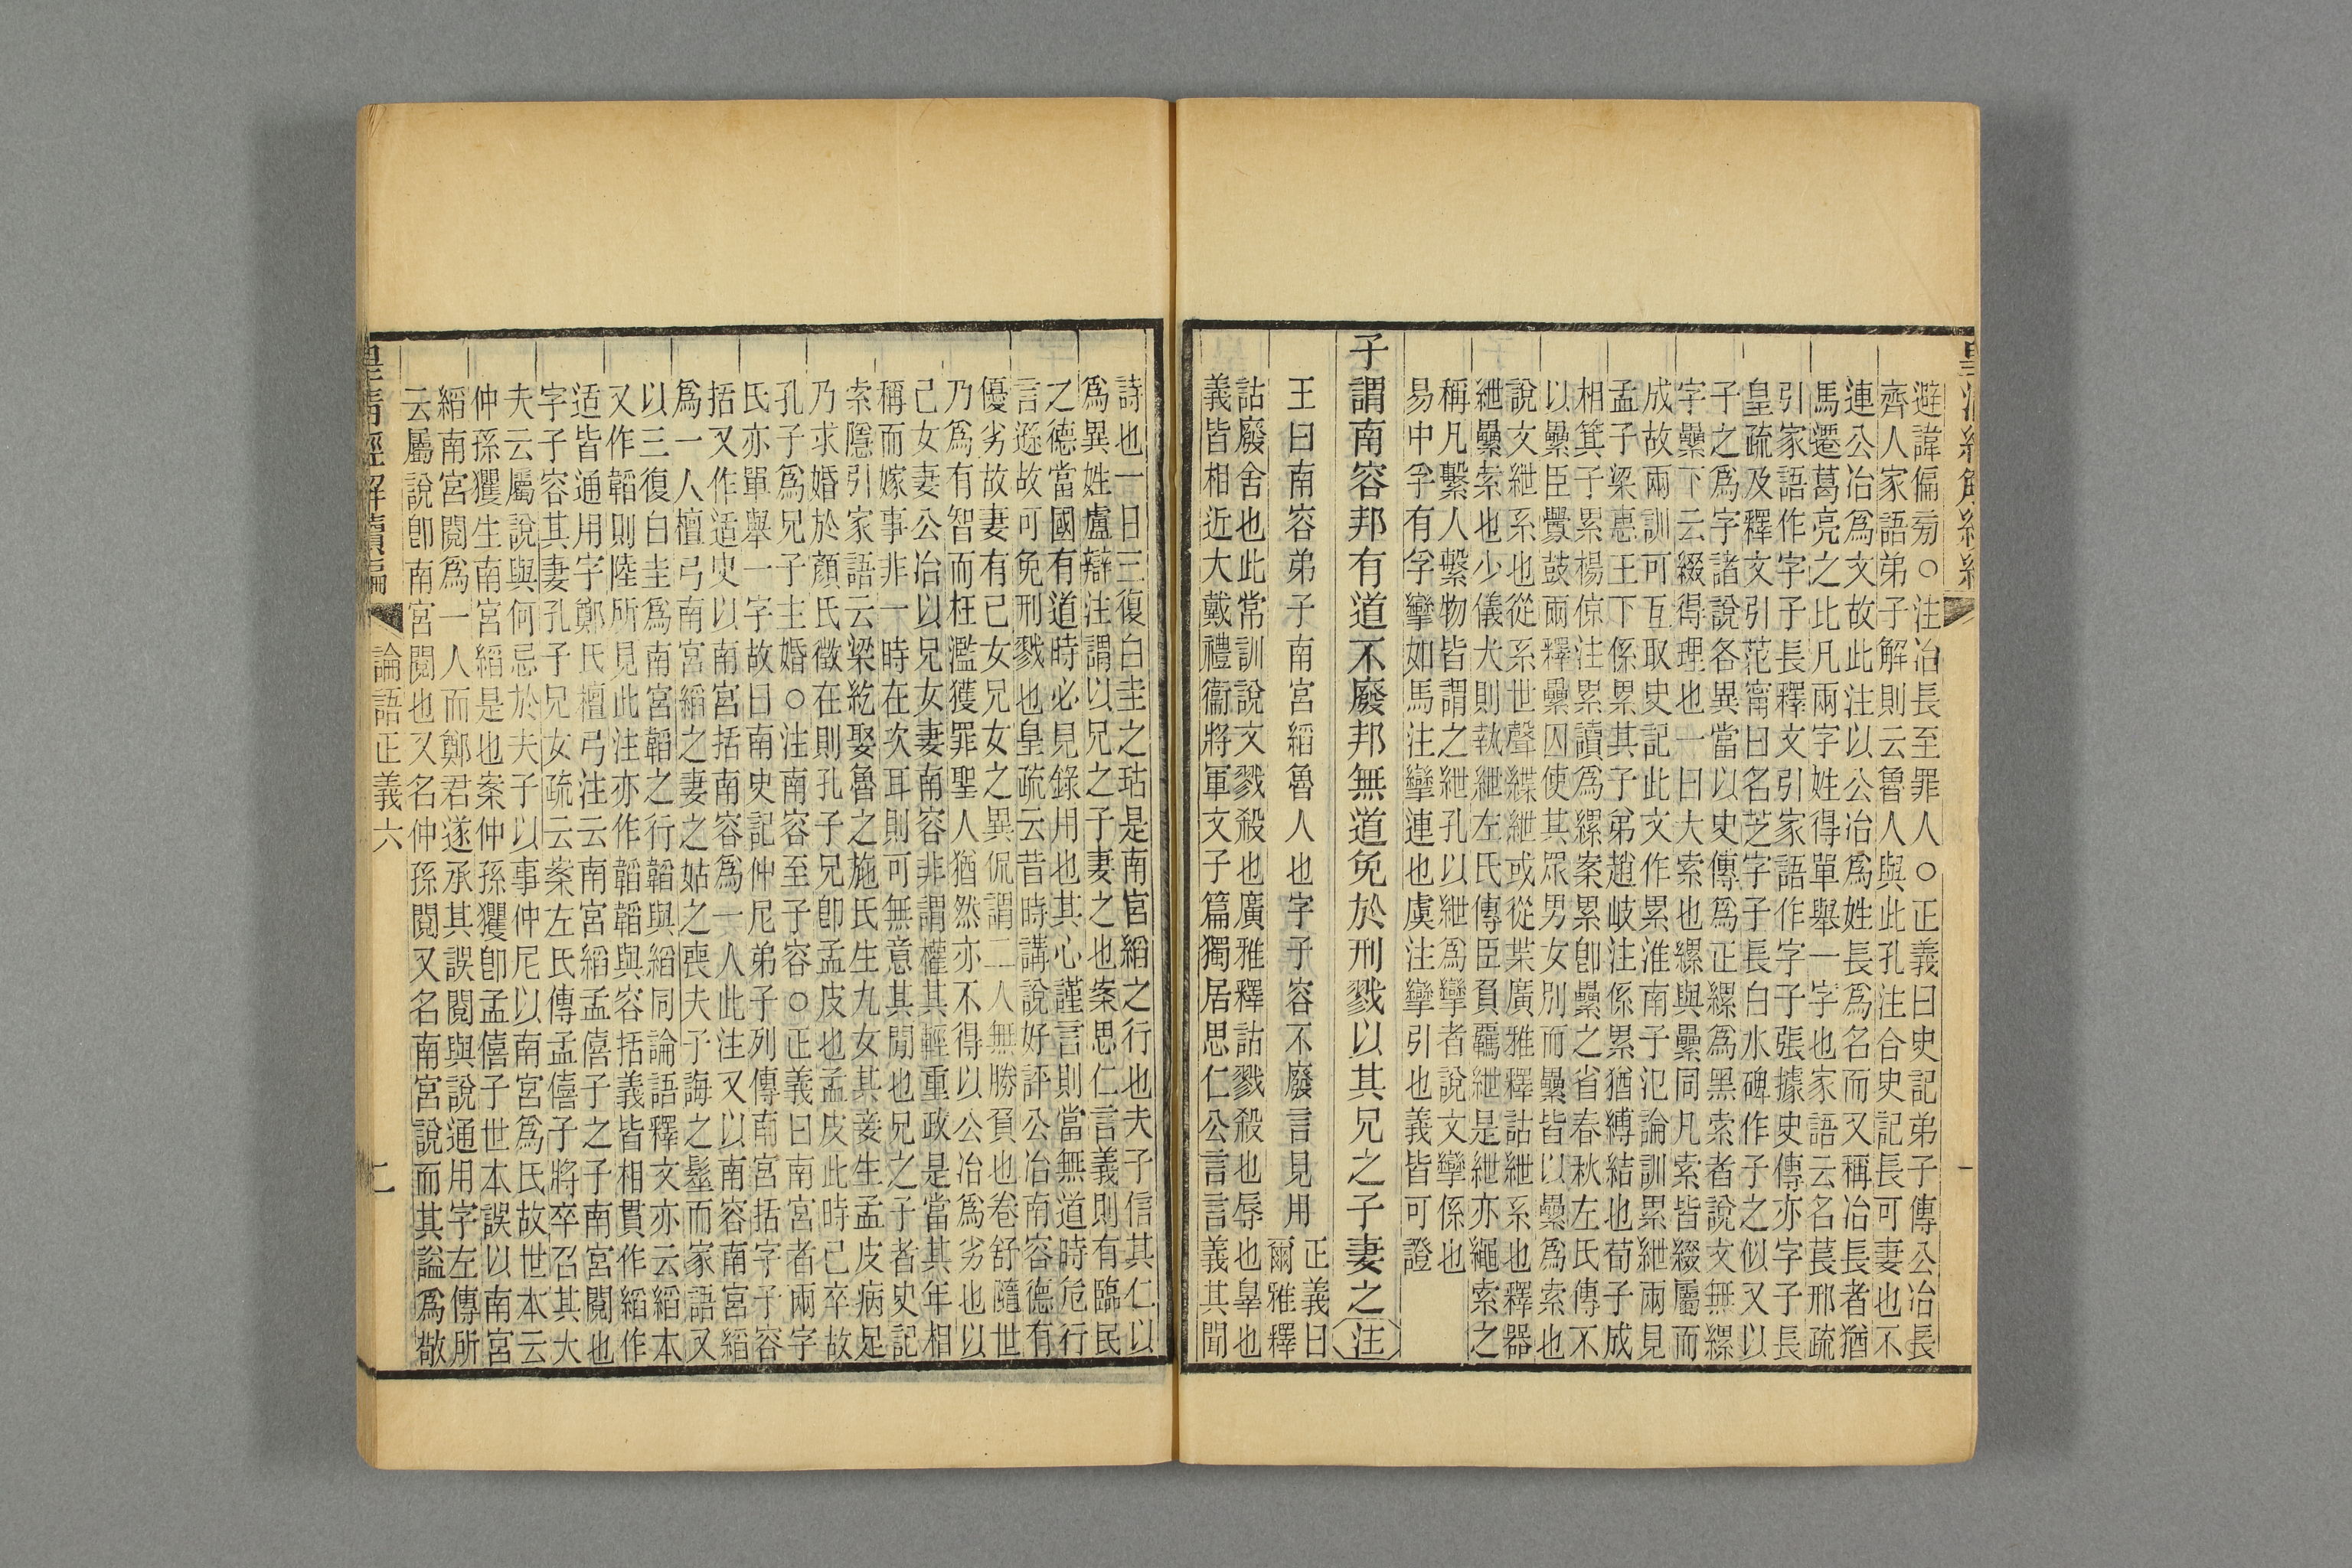 避諱偏旁○注冶長至罪人○正義曰史記弟子傳公冶長
齊人家語弟子解則云魯人與此孔注合史記長可妻也不
連公冶爲文故此注以公冶爲姓長爲名而又稱冶長者猶
馬遷葛亮之比凡兩字姓得單舉一字也家語云名萇邢疏
引家語作字子長釋文引家語作字子張據史傳亦字子長
皇疏及釋文引范甯曰名芝字子長白水碑作子之似又以
子之爲字諸說各異當以史傳爲正縲爲黑索者說文無縲
字纍下云綴得理也一曰大索也縲與纍同凡索皆綴屬而
成故兩訓可互取史記此文作累淮南子氾論訓累紲兩見
孟子梁惠王下係累其子弟趙岐注係累猶縛結也荀子成
相箕子累楊倞注累讀爲縲案累卽纍之省春秋左氏傳不
以纍臣釁鼓兩釋纍囚使其眾男女別而纍皆以纍爲索也
說文紲系也從系世聲緤紲或從枼廣雅釋詁紲系也釋器
紲纍索也少儀犬則執紲左氏傳臣負羈紲是紲亦繩索之
稱凡繫人繫物皆謂之紲孔以紲爲攣者說文攣係也
易中孚有孚攣如馬注攣連也虞注攣引也義皆可證
子謂南容邦有道不廢邦無道免於刑戮以其兄之子妻之注
王曰南容弟子南宮縚魯人也字子容不廢言見用
正義曰
爾雅釋
詁廢舍也此常訓說文戮殺也廣雅釋詁戮殺也辱也辠也
義皆相近大戴禮衞將軍文子篇獨居思仁公言言義其聞
詩也一日三復白圭之玷是南宮縚之行也夫子信其仁以
爲異姓盧辯注謂以兄之子妻之也案思仁言義則有臨民
之德當國有道時必見錄用也其心謹言則當無道時危行
言遜故可免刑戮也皇疏云昔時講說好評公冶南容德有
優劣故妻有己女兄女之異侃謂二人無勝負也卷舒隨世
乃爲有智而枉濫獲罪聖人猶然亦不得以公冶爲劣也以
己女妻公冶以兄女妻南容非謂權其輕重政是當其年相
稱而嫁事非一時在次耳則可無意其閒也兄之子者史記
索隱引家語云梁紇娶魯之施氏生九女其妾生孟皮病足
乃求婚於顏氏徵在則孔子兄卽孟皮也孟皮此時已卒故
孔子爲兄子主婚○注南容至子容○正義曰南宮者兩字
氏亦單舉一字故曰南史記仲尼弟子列傳南宮括字子容
括又作适史以南宮括南容爲一人此注又以南容南宮縚
爲一人檀弓南宮縚之妻之姑之喪夫子誨之髽而家語又
以三復白圭爲南宮韜之行韜與縚同論語釋文亦云縚本
又作韜則陸所見此注亦作韜韜與容括義皆相貫作縚作
适皆通用字鄭氏檀弓注云南宮縚孟僖子之子南宮閱也
字子容其妻孔子兄女疏云案左氏傳孟僖子將卒召其大
夫云屬說與何忌於夫子以事仲尼以南宮爲氏故世本云
仲孫玃生南宮縚是也案仲孫玃卽孟僖子世本誤以南宮
縚南宮閱爲一人而鄭君遂承其誤閱與說通用字左傳所
云屬說卽南宮閱也又名仲孫閱又名南宮說而其謚爲敬
皇清經解續編
論語正義六
二